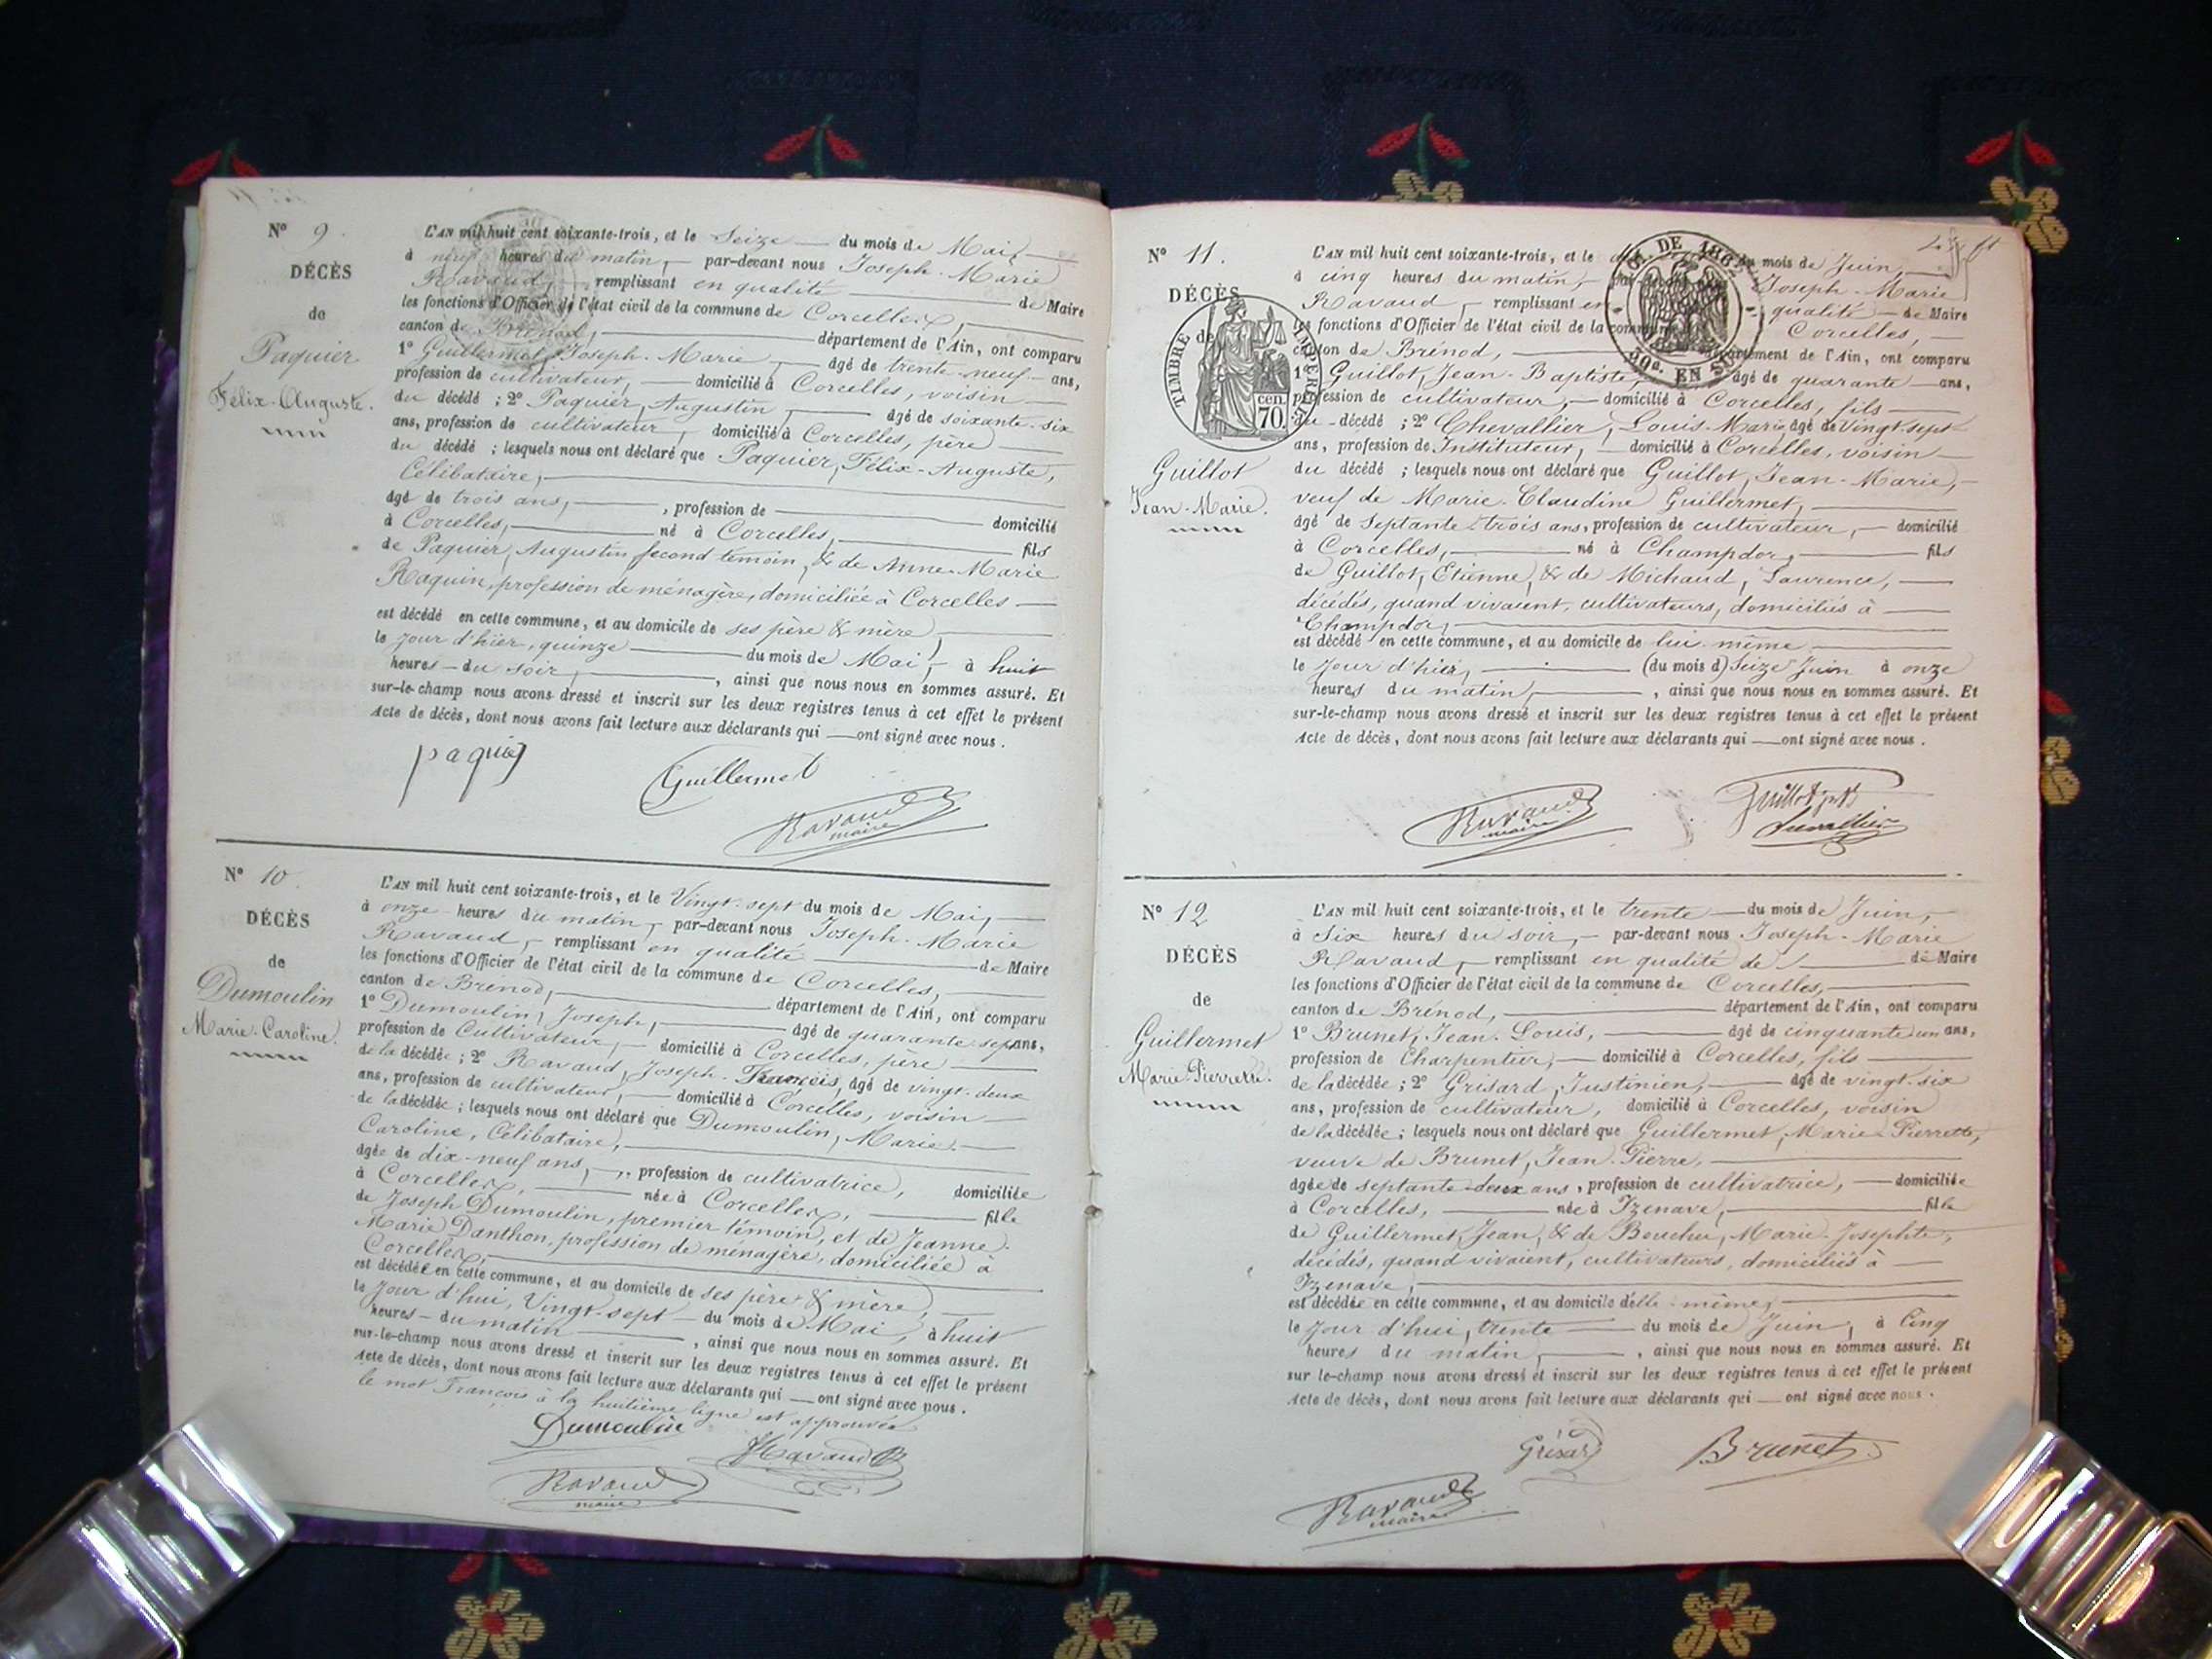 N° 9.
DÉCÈS
de
Paquier
Félix-Auguste.
L'AN mil huit cent soixante-trois, et le Seize du mois de Mai,
à neuf heures du matin, par-devant nous Joseph-Marie
Ravaud, remplissant en qualité de Maire
les fonctions d'Officier de l'état civil de la commune de Corcelles,
canton de Brénod, département de l'Ain, ont comparu
1° Guillermet, Joseph-Marie, âgé de trente-neuf ans,
profession de cultivateur, domicilié à Corcelles, voisin
du décédé ; 2° Paquier, Augustin, âgé de soixante-six
ans, profession de cultivateur, domicilié à Corcelles, père
du décédé ; lesquels nous ont déclaré que Paquier, Félix-Auguste,
Célibataire,
âgé de trois ans, , profession de domicilié
à Corcelles, né à Corcelles, fils
de Paquier, Augustin second témoin, & de Anne-Marie
Raquin, profession de ménagère, domiciliée à Corcelles
est décédé en cette commune, et au domicile de ses père & mère,
le jour d'hier, quinze du mois de Mai, à huit
heures du soir, , ainsi que nous nous en sommes assuré. Et
sur-le-champ nous avons dressé et inscrit sur les deux registres tenus à cet effet le présent
Acte de décès, dont nous avons fait lecture aux déclarants qui ont signé avec nous.
paquier
Guillermet
Ravaud
maire
N° 10.
DÉCÈS
de
Dumoulin
Marie-Caroline.
L'AN mil huit cent soixante-trois, et le Vingt-sept du mois de Mai,
à onze heures du matin, par-devant nous Joseph-Marie
Ravaud, remplissant en qualité de Maire
les fonctions d'Officier de l'état civil de la commune de Corcelles,
canton de Brénod, département de l'Ain, ont comparu
1° Dumoulin, Joseph, âgé de quarante-sept ans,
profession de Cultivateur, domicilié à Corcelles, père
de la décédée ; 2° Ravaud, Joseph-François, âgé de vingt-deux
ans, profession de cultivateur, domicilié à Corcelles, voisin
de la décédée ; lesquels nous ont déclaré que Dumoulin, Marie-
Caroline, Célibataire,
âgée de dix-neuf ans, profession de cultivatrice, domiciliée
à Corcelles, née à Corcelles, fille
de Joseph Dumoulin, premier témoin, et de Jeanne-
Marie Danthon, profession de ménagère, domiciliée à
Corcelles,
est décédée en cette commune, et au domicile de ses père & mère,
le Jour d'hui, Vingt-sept du mois de Mai, à huit
heures du matin , ainsi que nous nous en sommes assuré. Et
sur-le-champ nous avons dressé et inscrit sur les deux registres tenus à cet effet le présent
Acte de décès, dont nous avons fait lecture aux déclarants qui ont signé avec nous.
le mot François à la huitième ligne est approuvée
Dumoulin
Ravaud
Ravaud
maire
N° 11.
DÉCÈS
de
TIMBRE IMPÉRIAL
cen.
70.
Guillot
Jean-Marie.
L'AN mil huit cent soixante-trois, et le du mois de Juin,
à cinq heures du matin, Joseph-Marie
Ravaud, remplissant en qualité de Maire
les fonctions d'Officier de l'état civil de la commune Corcelles,
canton de Brénod, département de l'Ain, ont comparu
DE 1862
50c. EN SUS
1° Guillot, Jean-Baptiste, âgé de quarante ans,
profession de cultivateur, domicilié à Corcelles, fils
du décédé ; 2° Chevallier, Louis-Marie, âgé de Vingt-sept
ans, profession de Instituteur, domicilié à Corcelles, voisin
du décédé ; lesquels nous ont déclaré que Guillot, Jean-Marie,
veuf de Marie-Claudine Guillermet,
âgé de Septante-trois ans, profession de cultivateur, domicilié
à Corcelles, né à Champdor, fils
de Guillot, Etienne, & de Michaud, Laurence,
décédés, quand vivaient, cultivateurs, domiciliés à
Champdor,
est décédé en cette commune, et au domicile de lui-même
le jour d'hier, (du mois d) Seize Juin à onze
heures du matin, , ainsi que nous nous en sommes assuré. Et
sur-le-champ nous avons dressé et inscrit sur les deux registres tenus à cet effet le présent
Acte de décès, dont nous avons fait lecture aux déclarants qui ont signé avec nous.
Ravaud
maire
Guillot
Chevallier
N° 12
DÉCÈS
de
Guillermet
Marie-Pierrette.
L'AN mil huit cent soixante-trois, et le trente du mois de Juin,
à Six heures du soir, par-devant nous Joseph-Marie
Ravaud, remplissant en qualité de de Maire
les fonctions d'Officier de l'état civil de la commune de Corcelles,
canton de Brénod, département de l'Ain, ont comparu
1° Brunet, Jean-Louis, âgé de cinquante un ans,
profession de Charpentier, domicilié à Corcelles, fils
de la décédée ; 2° Grisard, Justinien, âgé de vingt-six
ans, profession de cultivateur, domicilié à Corcelles, voisin
de la décédée ; lesquels nous ont déclaré que Guillermet, Marie-Pierrette,
veuve de Brunet, Jean-Pierre,
âgée de septante-deux ans, profession de cultivatrice, domiciliée
à Corcelles, née à Izenave, fille
de Guillermet, Jean, & de Bouchu, Marie-Josephte,
décédés, quand vivaient, cultivateurs, domiciliés à
Izenave,
est décédée en cette commune, et au domicile d'elle-même,
le Jour d'hui, trente du mois de Juin, à Cinq
heures du matin, , ainsi que nous nous en sommes assuré. Et
sur le-champ nous avons dressé et inscrit sur les deux registres tenus à cet effet le présent
Acte de décès, dont nous avons fait lecture aux déclarants qui ont signé avec nous.
Grisard
Brunet
Ravaud
maire